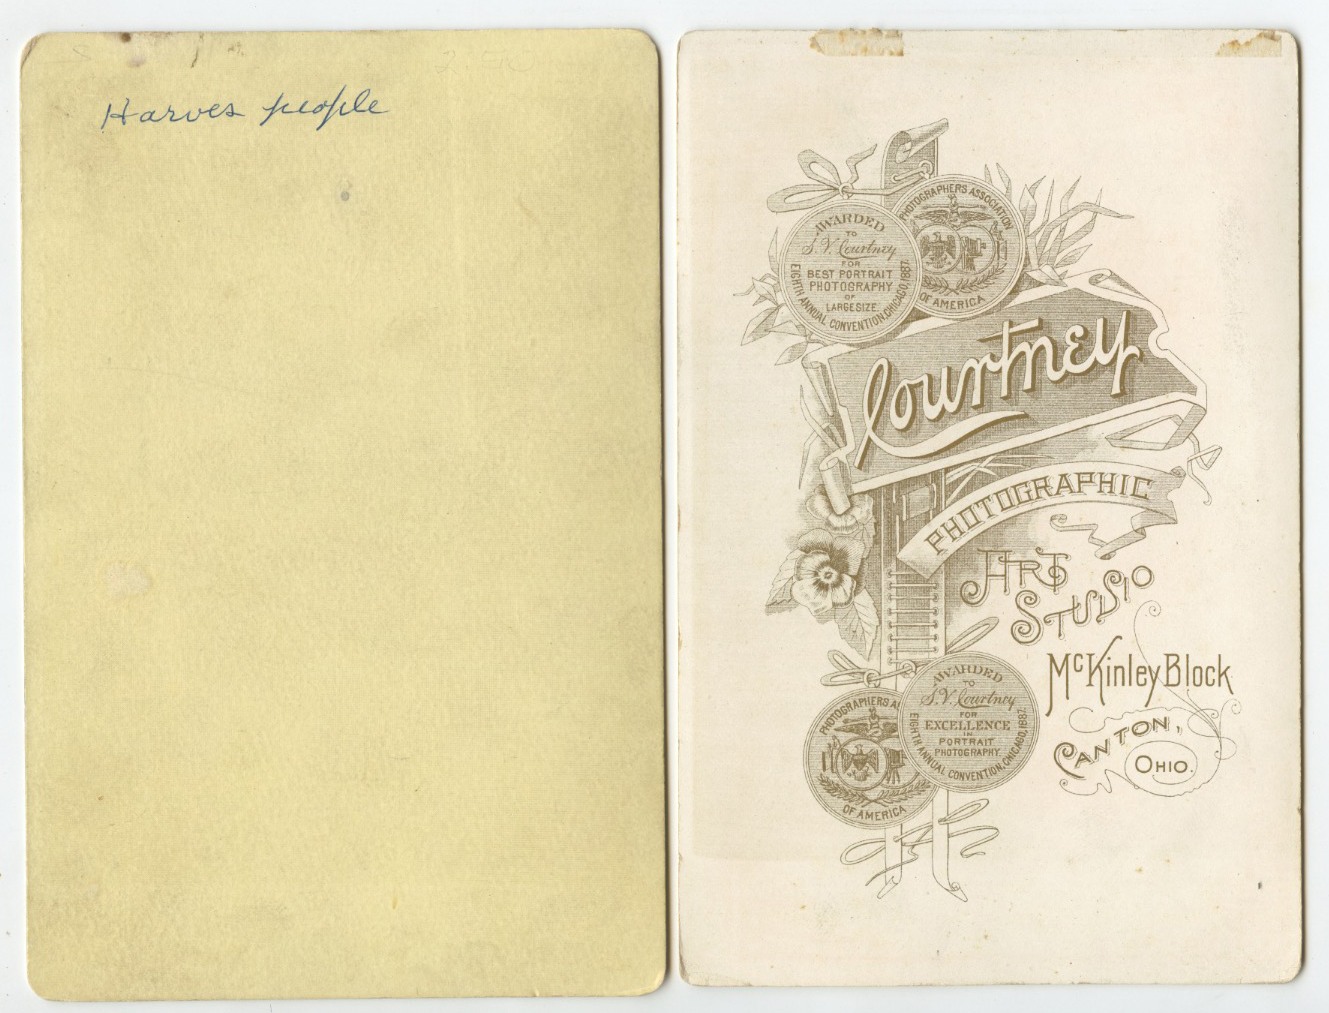 Harves people
AWARDED
TO
S. V. Courtney
FOR
BEST PORTRAIT
PHOTOGRAPHY
OF
LARGE SIZE.
EIGHTH ANNUAL CONVENTION, CHICAGO, 1887.
PHOTOGRAPHERS ASSOCIATION
OF AMERICA
Courtney
PHOTOGRAPHIC
ART
STUDIO
McKinley Block
CANTON,
OHIO.
AWARDED
TO
S. V. Courtney
FOR
EXCELLENCE
IN
PORTRAIT
PHOTOGRAPHY.
EIGHTH ANNUAL CONVENTION, CHICAGO, 1887.
PHOTOGRAPHERS A
OF AMERICA